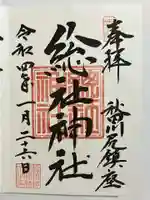 奉拝
川元鎮座
総社神社
令和四年一月二十六日